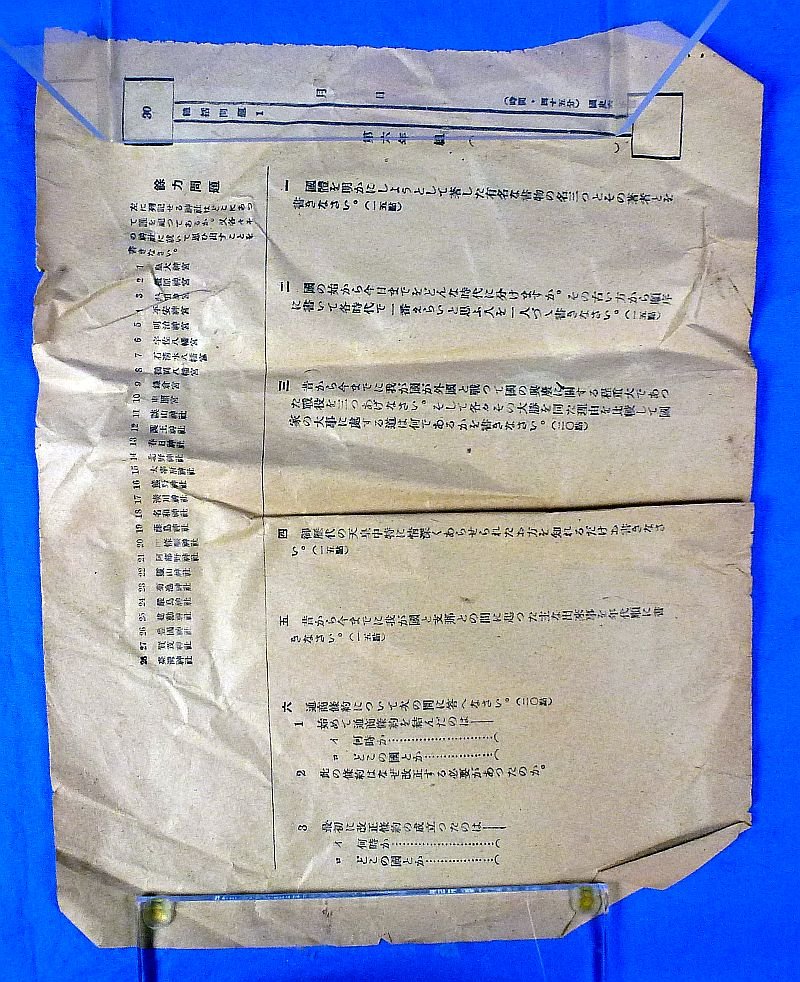 30
總括問題 1
月 日
(時間・四十五分)
第六年 組 ( )
一 國體を明かにしようとして著した有名な書物の名三つとその著者とを
書きなさい。(一五點)
二 國の始から今日までをどんな時代に分けますか。その古い方から順序
に書いて各時代で一番えらいと思ふ人を一人づゝ書きなさい。(一五點)
三 昔から今までに我が國が外國と戰つて國の興廢に關する程重大であつ
た戰役を三つあげなさい。そして各々その大勝を得た理由を比較して國
家の大事に處する道は何であるかを書きなさい。(二〇點)
四 御歷代の天皇中特に情深くあらせられたお方を知れるだけお書きなさ
い。(一五點)
五 昔から今までに我が國と支那との間に起つた主な出來事を年代順に書
きなさい。(一五點)
六 通商條約について次の問に答へなさい。(二〇點)
1 始めて通商條約を結んだのは──
イ 何時か…………(
ロ どこの國とか…………(
2 此の條約はなぜ改正する必要があつたのか。
3 最初に改正條約の成立つたのは──
イ 何時か…………(
ロ どこの國とか…………(
餘力問題
左に列記せる神社はどこにあつ
て誰を祀つてあるか。又各々そ
の神社に就いて思ひ出すことを
書きなさい。
1 皇大神宮
2 橿原神宮
3 熱田神宮
4 平安神宮
5 明治神宮
6 宇佐八幡宮
7 石清水八幡宮
8 鶴岡八幡宮
9 鎌倉宮
10 東照宮
11 談山神社
12 護王神社
13 春日神社
14 北野神社
15 太宰府神社
16 熊野神社
17 湊川神社
18 名和神社
19 藤島神社
20 四條畷神社
21 阿部野神社
22 靈山神社
23 菊池神社
24 嚴島神社
25 建勳神社
26 豐國神社
27 賀茂神社
28 神社